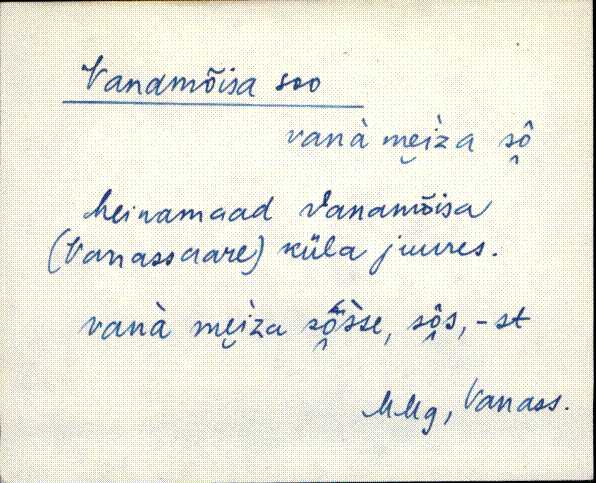 Vanamõisa soo
vanà mei̯za sô̭
heinamaad Vanamõisa
(Vanassaare) küla juures.
vanà mei̯za sô̭sse, sô̭s, -st
MMg, Vanass.